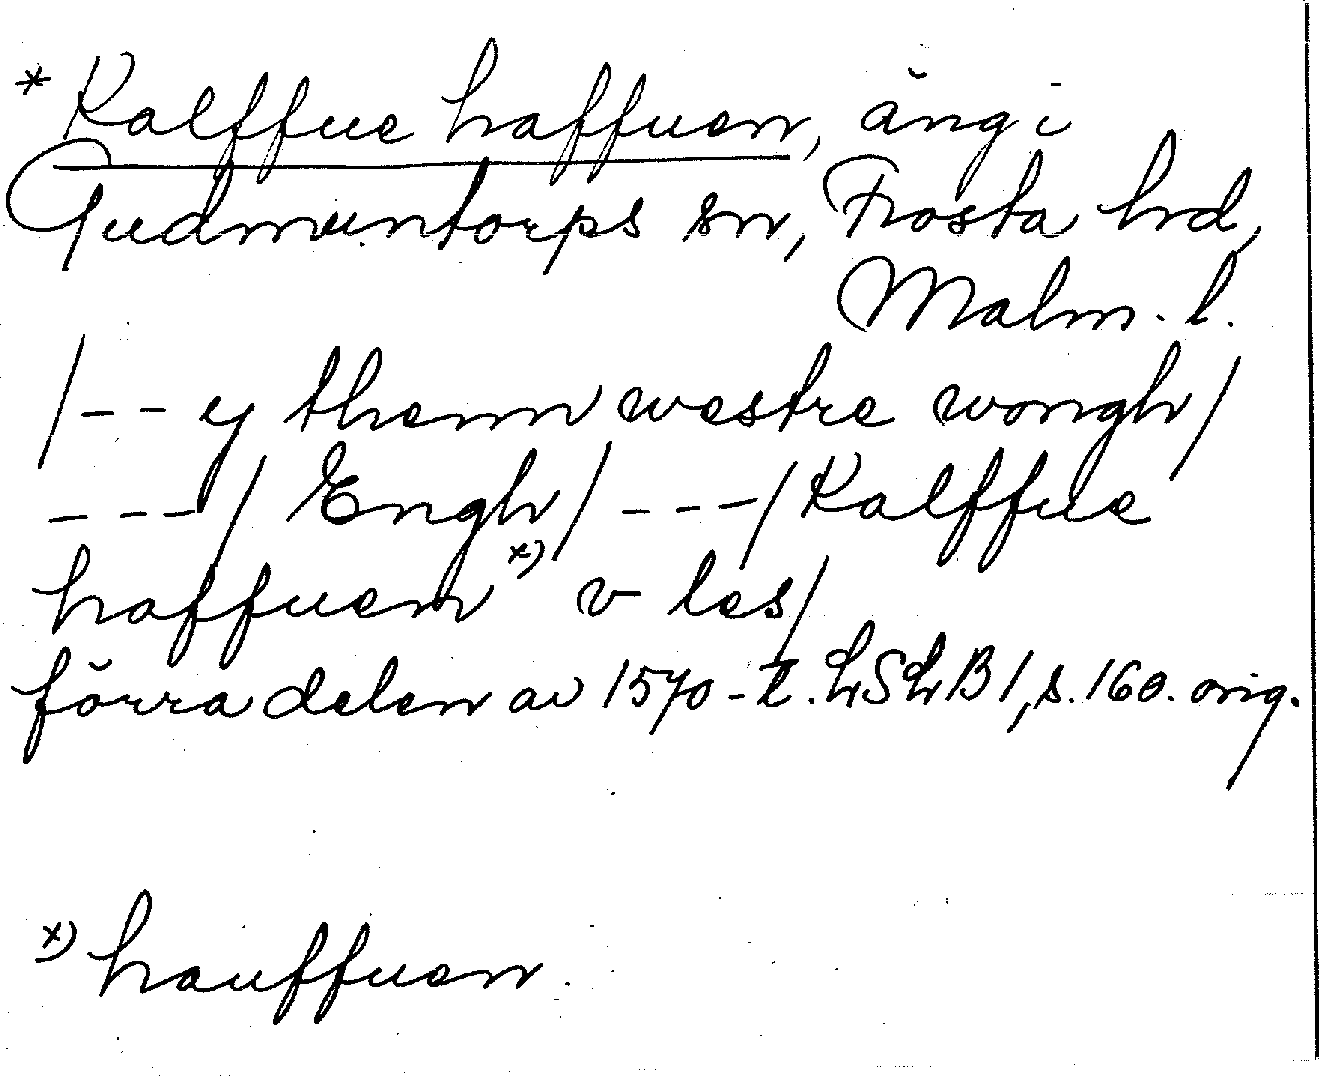 * Kalffue haffuen, äng i
Gudmuntorps sn, Frosta hrd,
Malm. l.
/-- y thenn westre wongh/
---/ Engh/ ---/ Kalffue
haffuen x) v les/
förra delen av 1570-t. LSLB 1, s. 160. orig.
x) hauffuen.